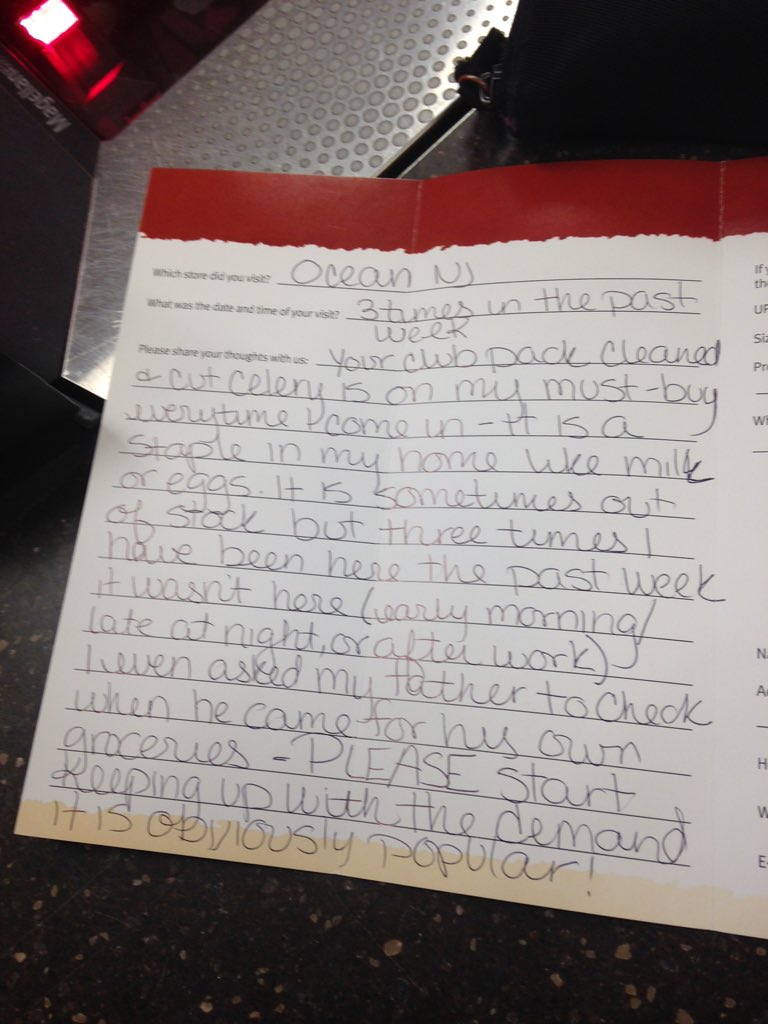 Magellan
Which store did you visit? Ocean NJ
What was the date and time of your visit? 3 times in the past
week
Please share your thoughts with us: Your club pack cleaned
& cut celery is on my must-buy
everytime I come in - it is a
staple in my home like milk
or eggs. It is sometimes out
of stock but three times I
have been here the past week
it wasn't here (early morning/
late at night, or after work)
I even asked my father to check
when he came for his own
groceries - PLEASE start
keeping up with the demand
it is obviously popular!
If y
the
UP
Si
Pr
W
N
A
H
W
E-